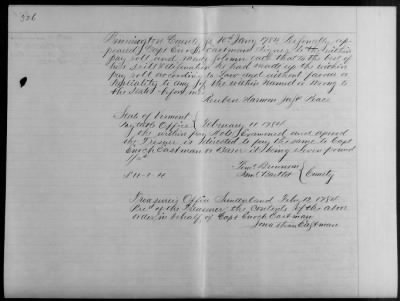 306
Bennington County ss 10th Jany 1784 Personally ap-
peared Capt Enoch Eastman Signer to the within
pay roll and made solemn oath that to the best of
his skill & he had made up the within
pay roll according to Law and without favour or
partiality to any of the within Named or Wrong to
the State before me
Reuben Harmon Just Peace
State of Vermont
Pay table Office February 11 1784
the within pay Role Examined and aproved
the Tresurer is directed to pay the same to Capt
Enoch Eastman or Bearer it being eleven pound
Timy Brownson
Saml Butler
Comtty
£ 11
Treasurers Office Sunderland Feby 12 1784
Recd of the Treasurer the Contents of the above
order in behalf of Capt Enoch Eastman
Jonathan Eastman